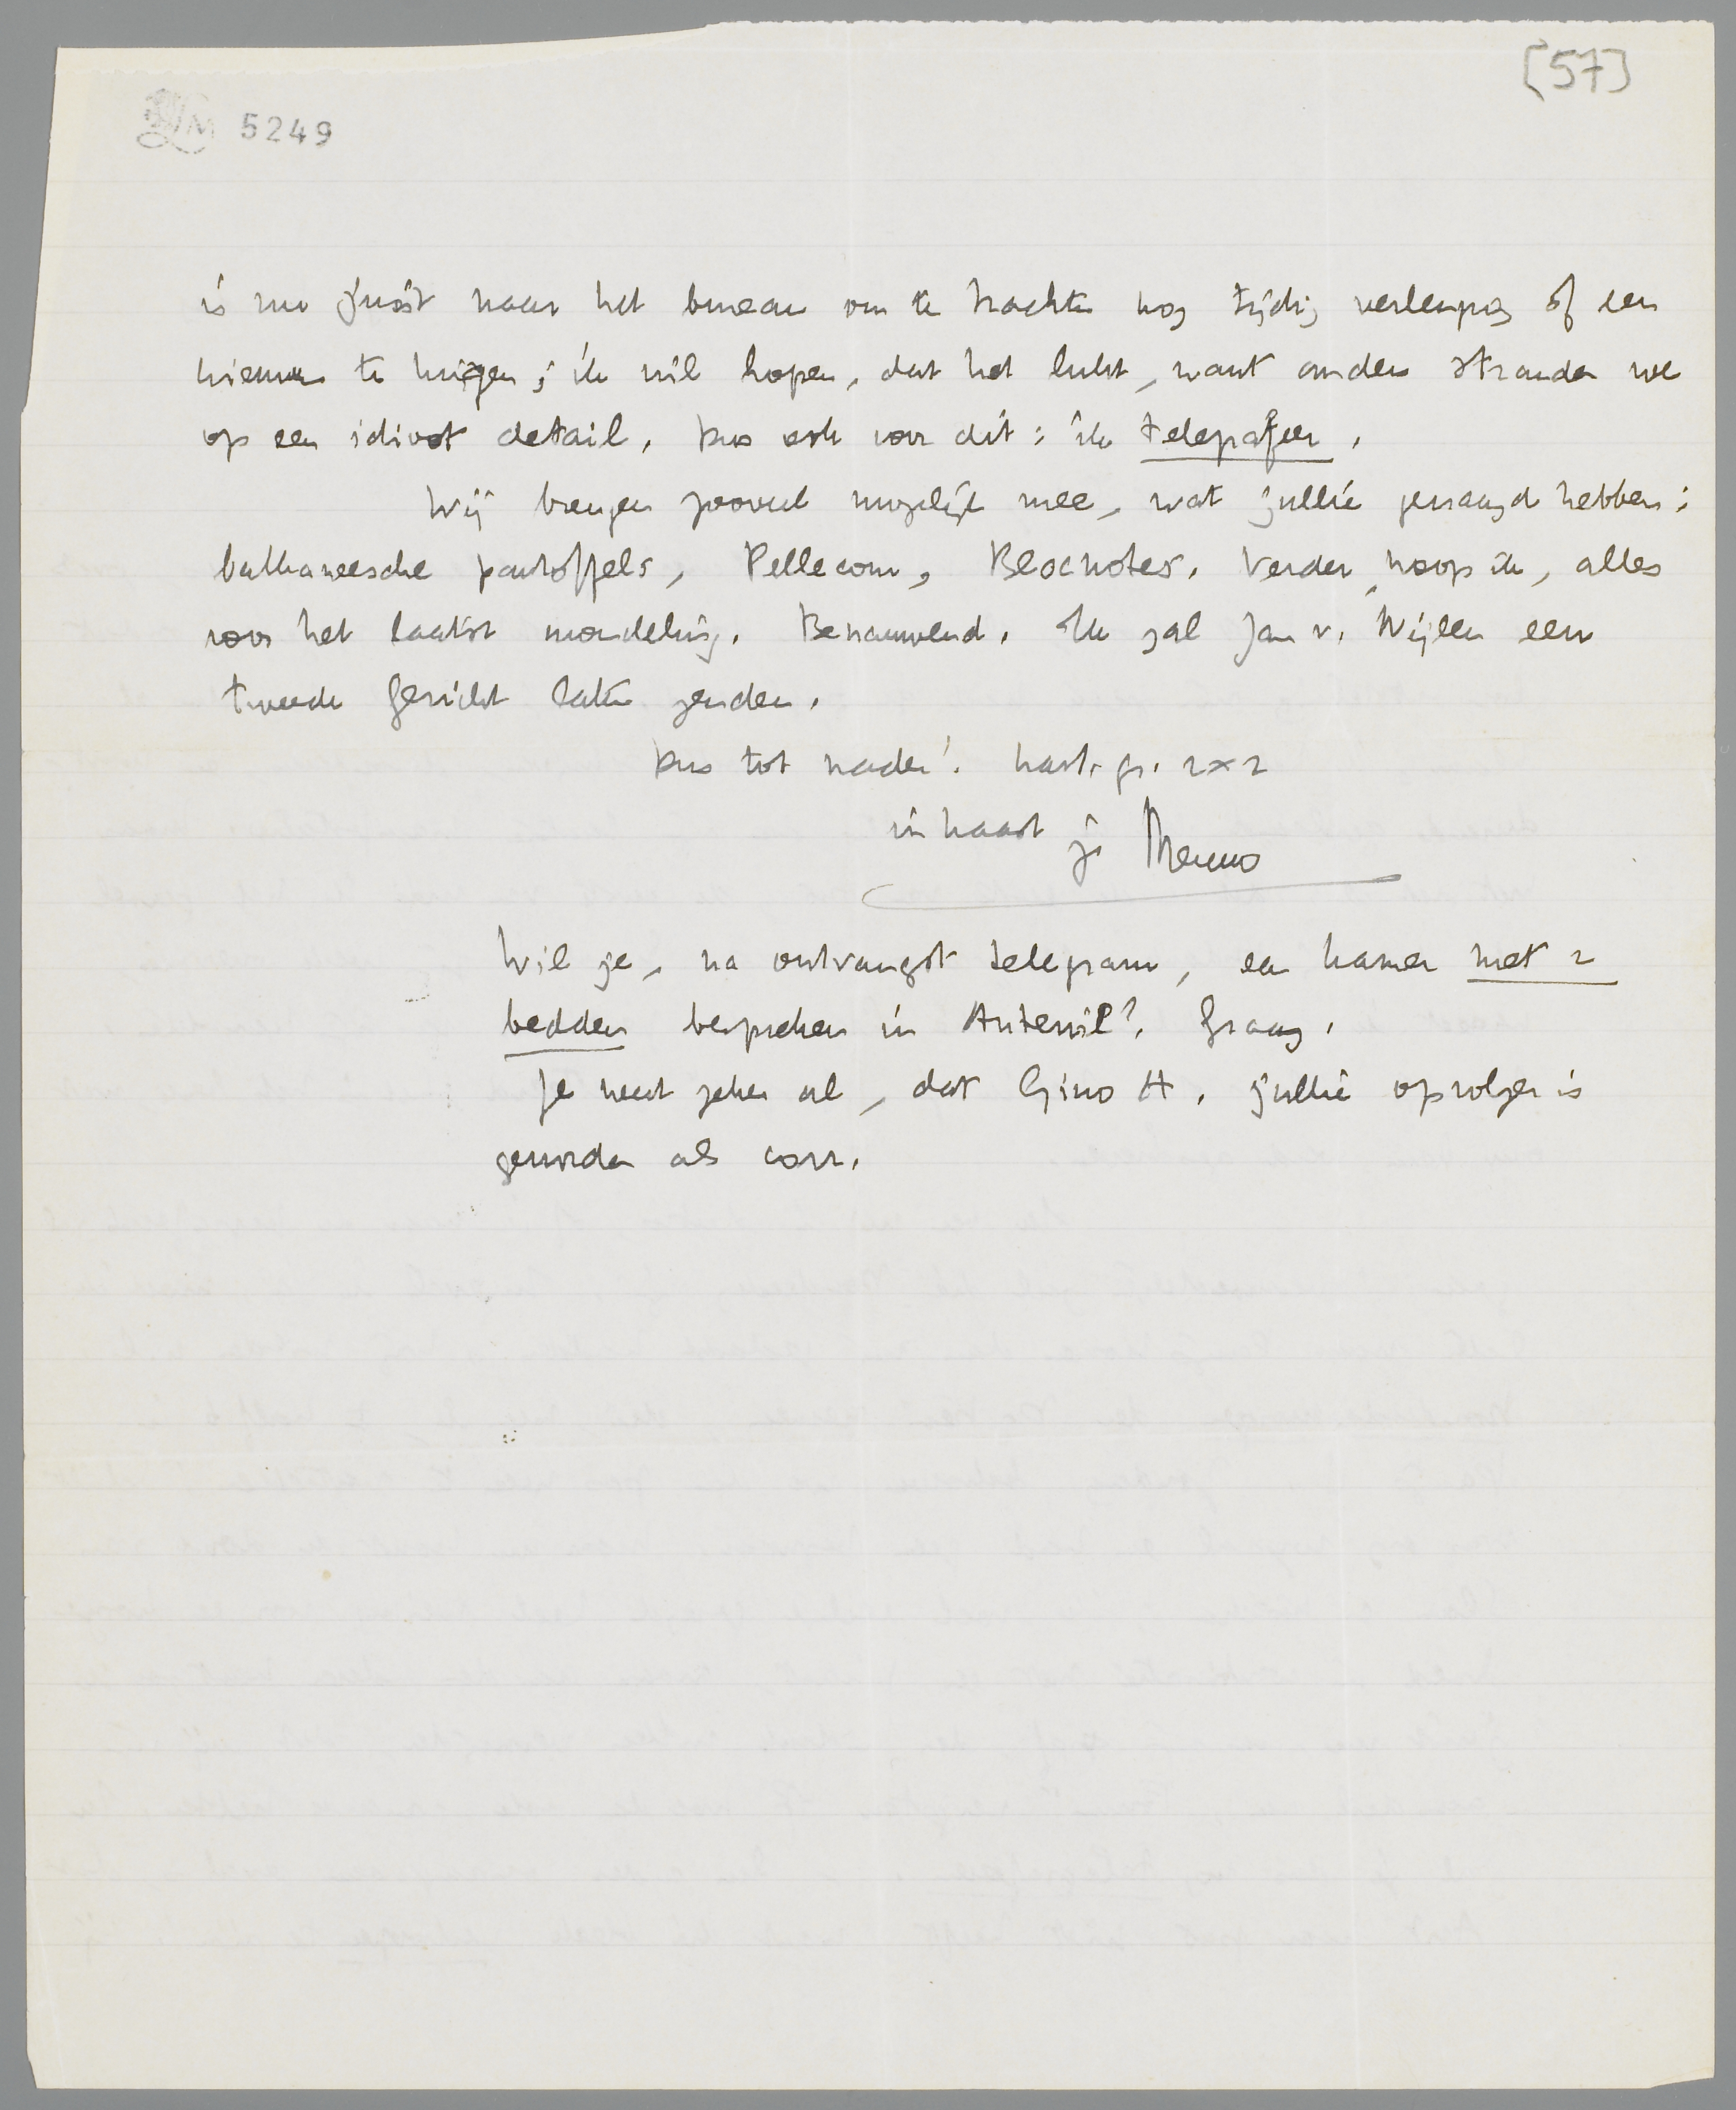 [57]
LM 5249
is nu juist naar het bureau om te trachten nog tijdig verlenging of een
nieuwe te krijgen; ik wil hopen, dat het lukt, want anders stranden we
op een idioot detail. Dus ook voor dit: ik telegrafeer.
Wij brengen zooveel mogelijk mee, wat jullie gevraagd hebben:
balkaneesche pantoffels, Pellecom, Blocnotes. Verder, hoop ik, alles
voor het laatst mondeling. Benauwend. Ik zal Jan v. Nijlen een
tweede gericht laten zenden.
Dus tot nader! hart. gr. 2 x 2
in haast je Menno
Wil je, na ontvangst telegram, een kamer met 2
bedden bespreken in Auteuil? Graag.
Je weet zeker al, dat Gino A. jullie opvolger is
geworden als corr.